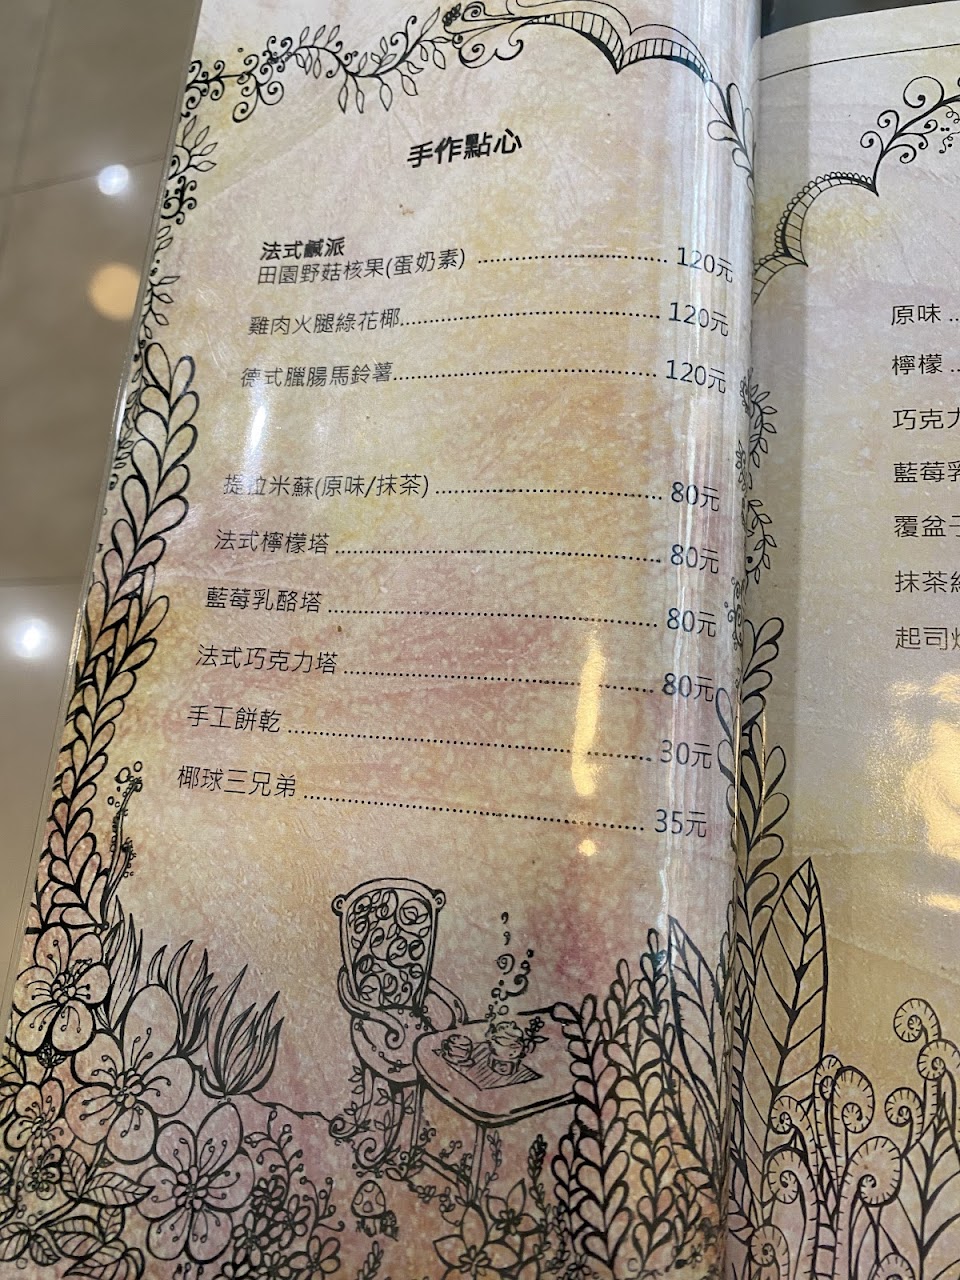 手作點心
法式鹹派
田園野菇核果(蛋奶素) 120元
雞肉火腿綠花椰 120元
德式臘腸馬鈴薯 120元
提拉米蘇(原味/抹茶) 80元
法式檸檬塔 80元
藍莓乳酪塔 80元
法式巧克力塔 80元
手工餅乾 30元
椰球三兄弟 35元
原味
檸檬
巧克力
藍莓乳
覆盆子
抹茶紅
起司